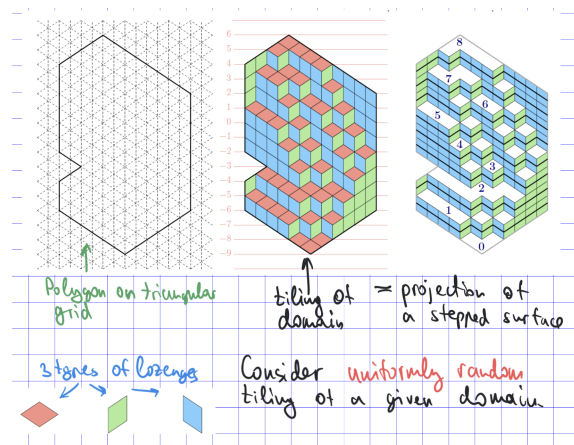 6
5
4
3
2
1
0
-1
-2
-3
-4
-5
-6
-7
-8
-9
8
7
6
5
4
3
2
1
0
Polygon on triangular
grid
tiling of
domain
= projection of
a stepped surface
3 types of lozenges
Consider uniformly random
tiling of a given domain